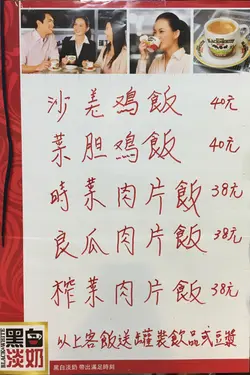 沙羌鸡飯 40元
菜胆鸡飯 40元
時菜肉片飯 38元
良瓜肉片飯 38元
榨菜肉片飯 38元
以上客飯送罐裝飲品或豆漿
BLACK&WHITE
黑白淡奶
黑白淡奶 帶出滿足時刻